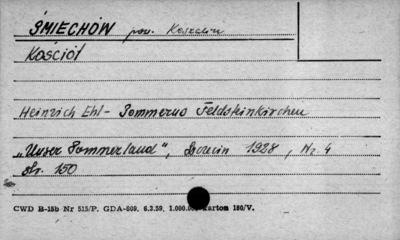 ŚMIECHÓW pow. Koszalin
Kościół
Heinrich Ehl - Pommerns Feldsteinkirchen
„Unser Pommerland", Szczecin 1928, Nr. 4
str. 150
CWD B-15b Nr 515/P. GDA-809. 6.3.59. 1.000.000 karton 180/V.